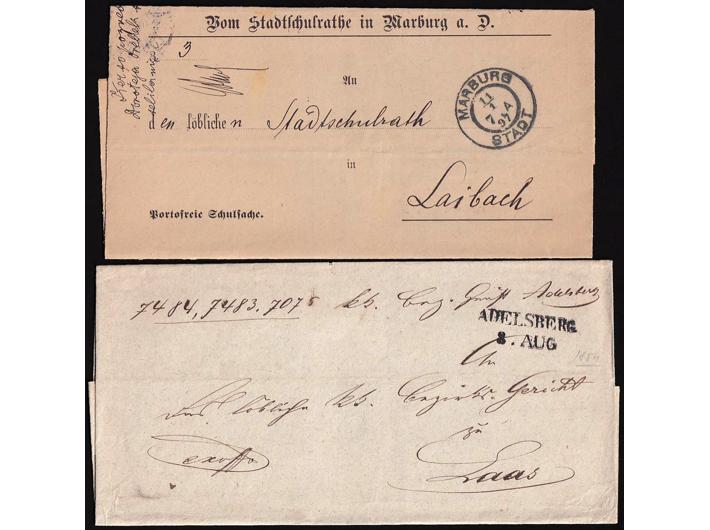 Vom Stadtschulrathe in Marburg a. D.
3
An
den löblichen Stadtschulrath
in
Laibach
Portofreie Schulsache.
MARBURG
11
7
97
A
STADT
7484, 7483. 707 kk. Bez. Adelsberg
ADELSBERG
8. AUG
An
Das löbliche kk. Bezirks-Gericht
zu
exoffo
Laas